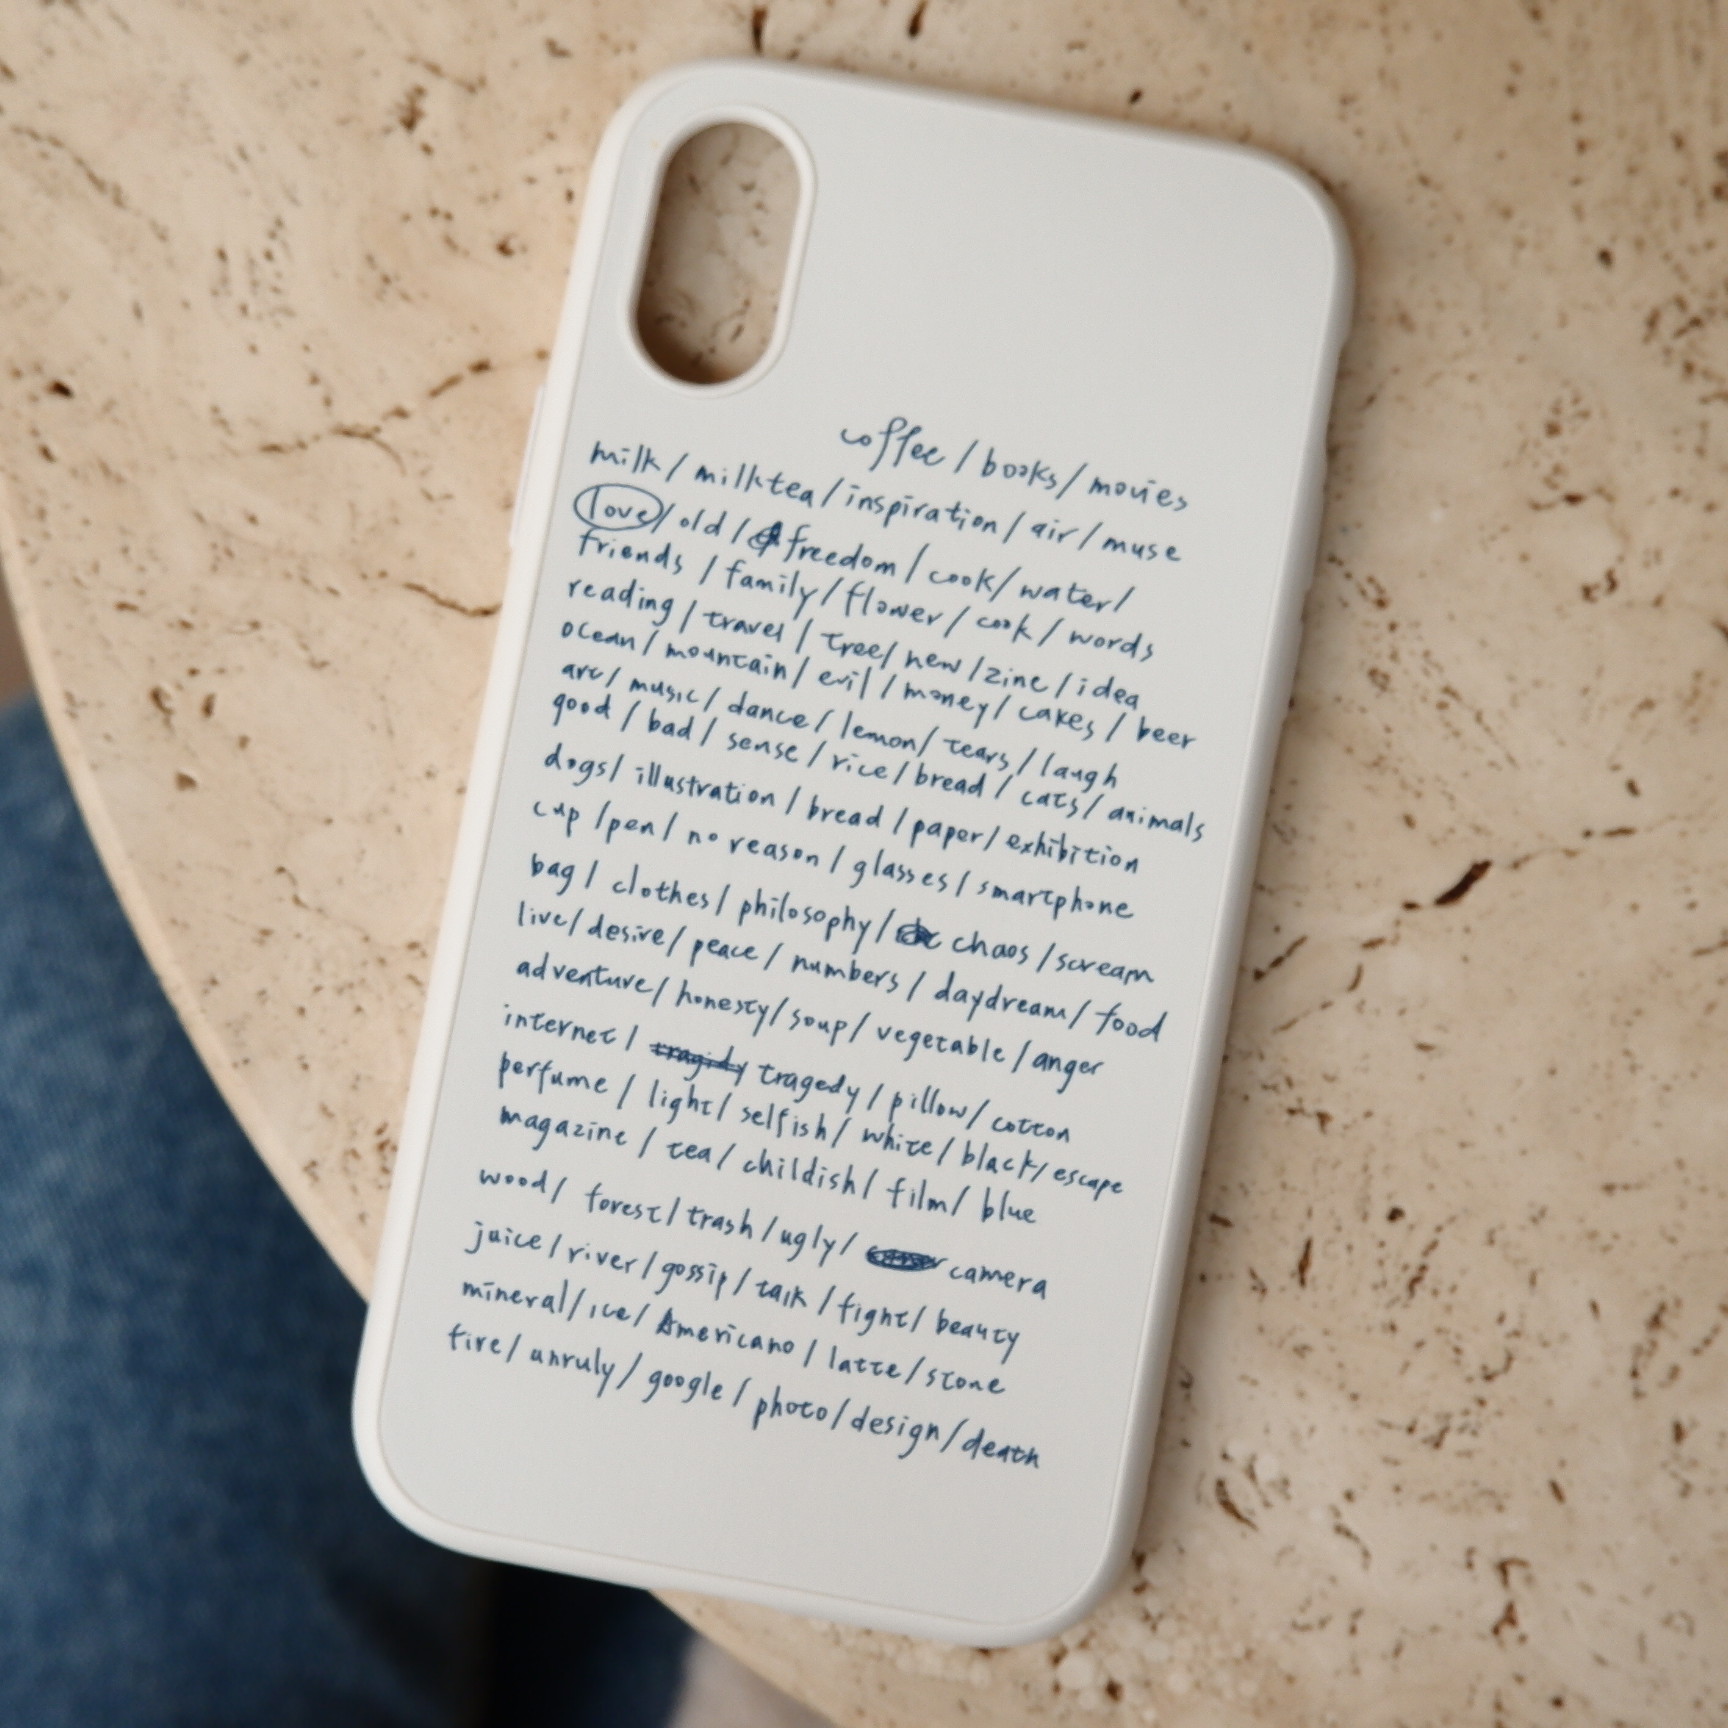 coffee / books / movies
milk / milktea / inspiration / air / muse
love / old / freedom / cook / water /
friends / family / flower / cook / words
reading / travel / tree / new / zine / idea
ocean / mountain / evil / money / cakes / beer
art / music / dance / lemon / tears / laugh
good / bad / sense / rice / bread / cats / animals
dogs / illustration / bread / paper / exhibition
cup / pen / no reason / glasses / smartphone
bag / clothes / philosophy / chaos / scream
live / desire / peace / numbers / daydream / food
adventure / honesty / soup / vegetable / anger
internet / tragidy tragedy / pillow / cotton
perfume / light / selfish / white / black / escape
magazine / tea / childish / film / blue
wood / forest / trash / ugly / camera
juice / river / gossip / talk / fight / beauty
mineral / ice / Americano / latte / stone
fire / unruly / google / photo / design / death